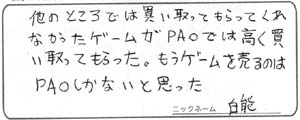 他のところでは買い取ってもらってくれ
なかったゲームがPAOでは高く買
い取ってもらった。もうゲームを売るのは
PAOしかないと思った
ニックネーム 白熊